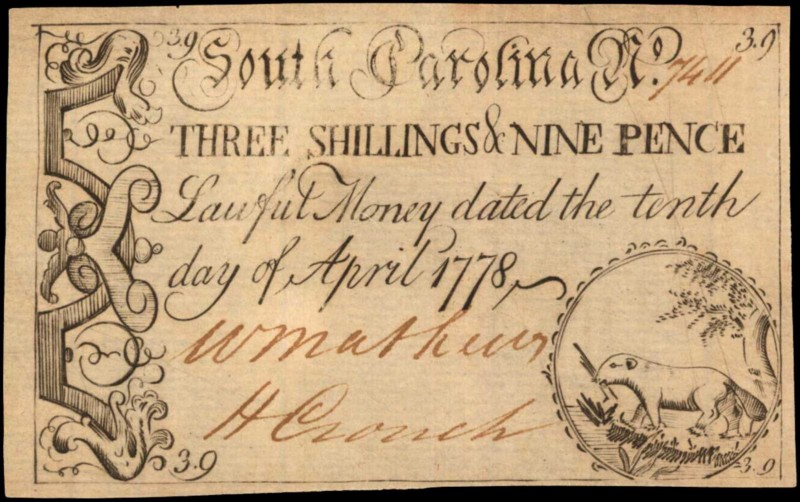 3.9 South Carolina No. 7411 3.9
THREE SHILLINGS & NINE PENCE
Lawful Money dated the tenth
day of April 1778
W Mathews
H Crouch
3.9 3.9